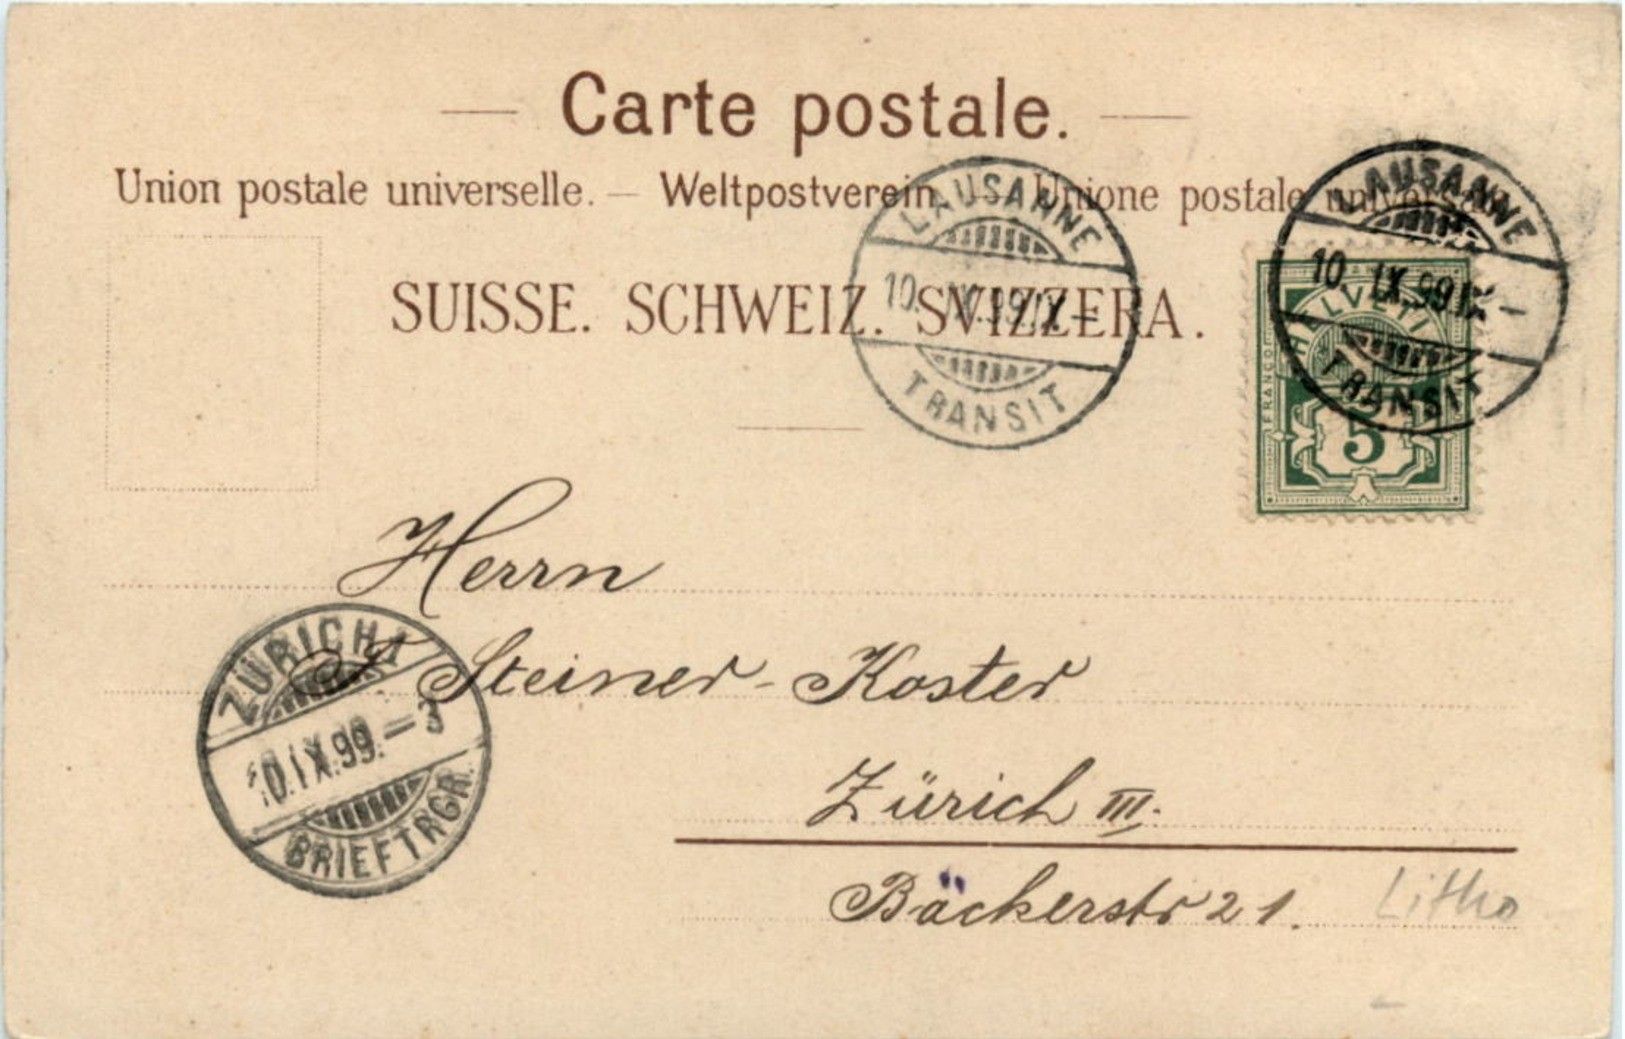 Carte postale.
Union postale universelle. — Weltpostverein. — Unione postale universale
SUISSE. SCHWEIZ. SVIZZERA.
LAUSANNE
10. IX. 99. IX –
TRANSIT
LAUSANNE
10. IX. 99. IX – 
TRANSIT
FRANCO
HELVETI
5
Herrn
Steiner-Koster
ZÜRICH 1
10. IX. 99. – 3
BRIEFTRGR.
Zürich III.
Bäckerstr 21.
Litho